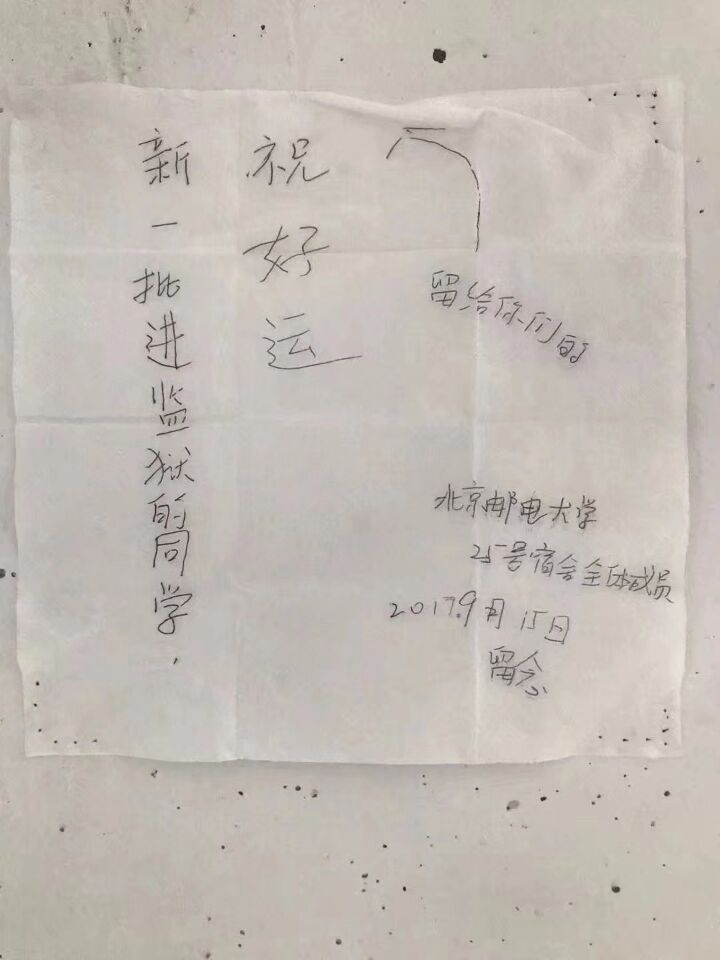 新一批进监狱的同学.
祝好运
留给你们的
北京邮电大学
25号宿舍全体成员
2017.9月15日
留念